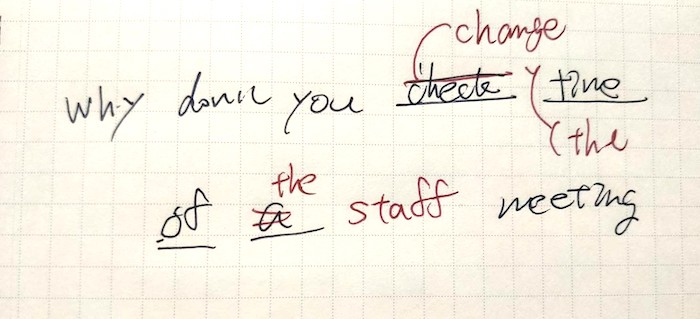 change
why don't you check time
(the
the
of a staff meeting